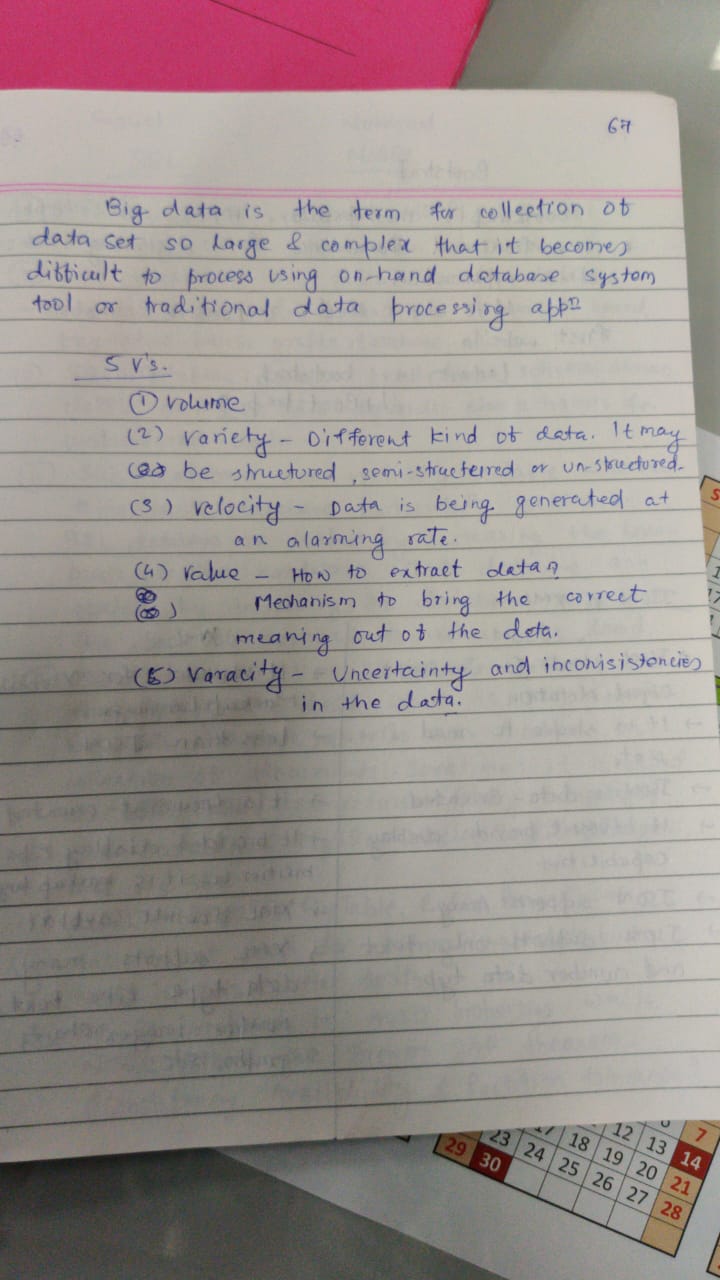 67
Big data is the term for collection of
data set so large & complex that it becomes
difficult to process using on-hand database system
tool or traditional data processing appn
5 V's.
① Volume
(2) Variety - Different kind of data. It may
be structured, semi-structerred or un-structured.
(3) velocity - Data is being generated at
an alarming rate.
(4) Value - How to extract data?
Mechanism to bring the correct
meaning out of the data.
(5) Varacity - Uncertainty and inconisistoncies
in the data.
7
12 13 14
17 18 19 20 21
23 24 25 26 27 28
29 30